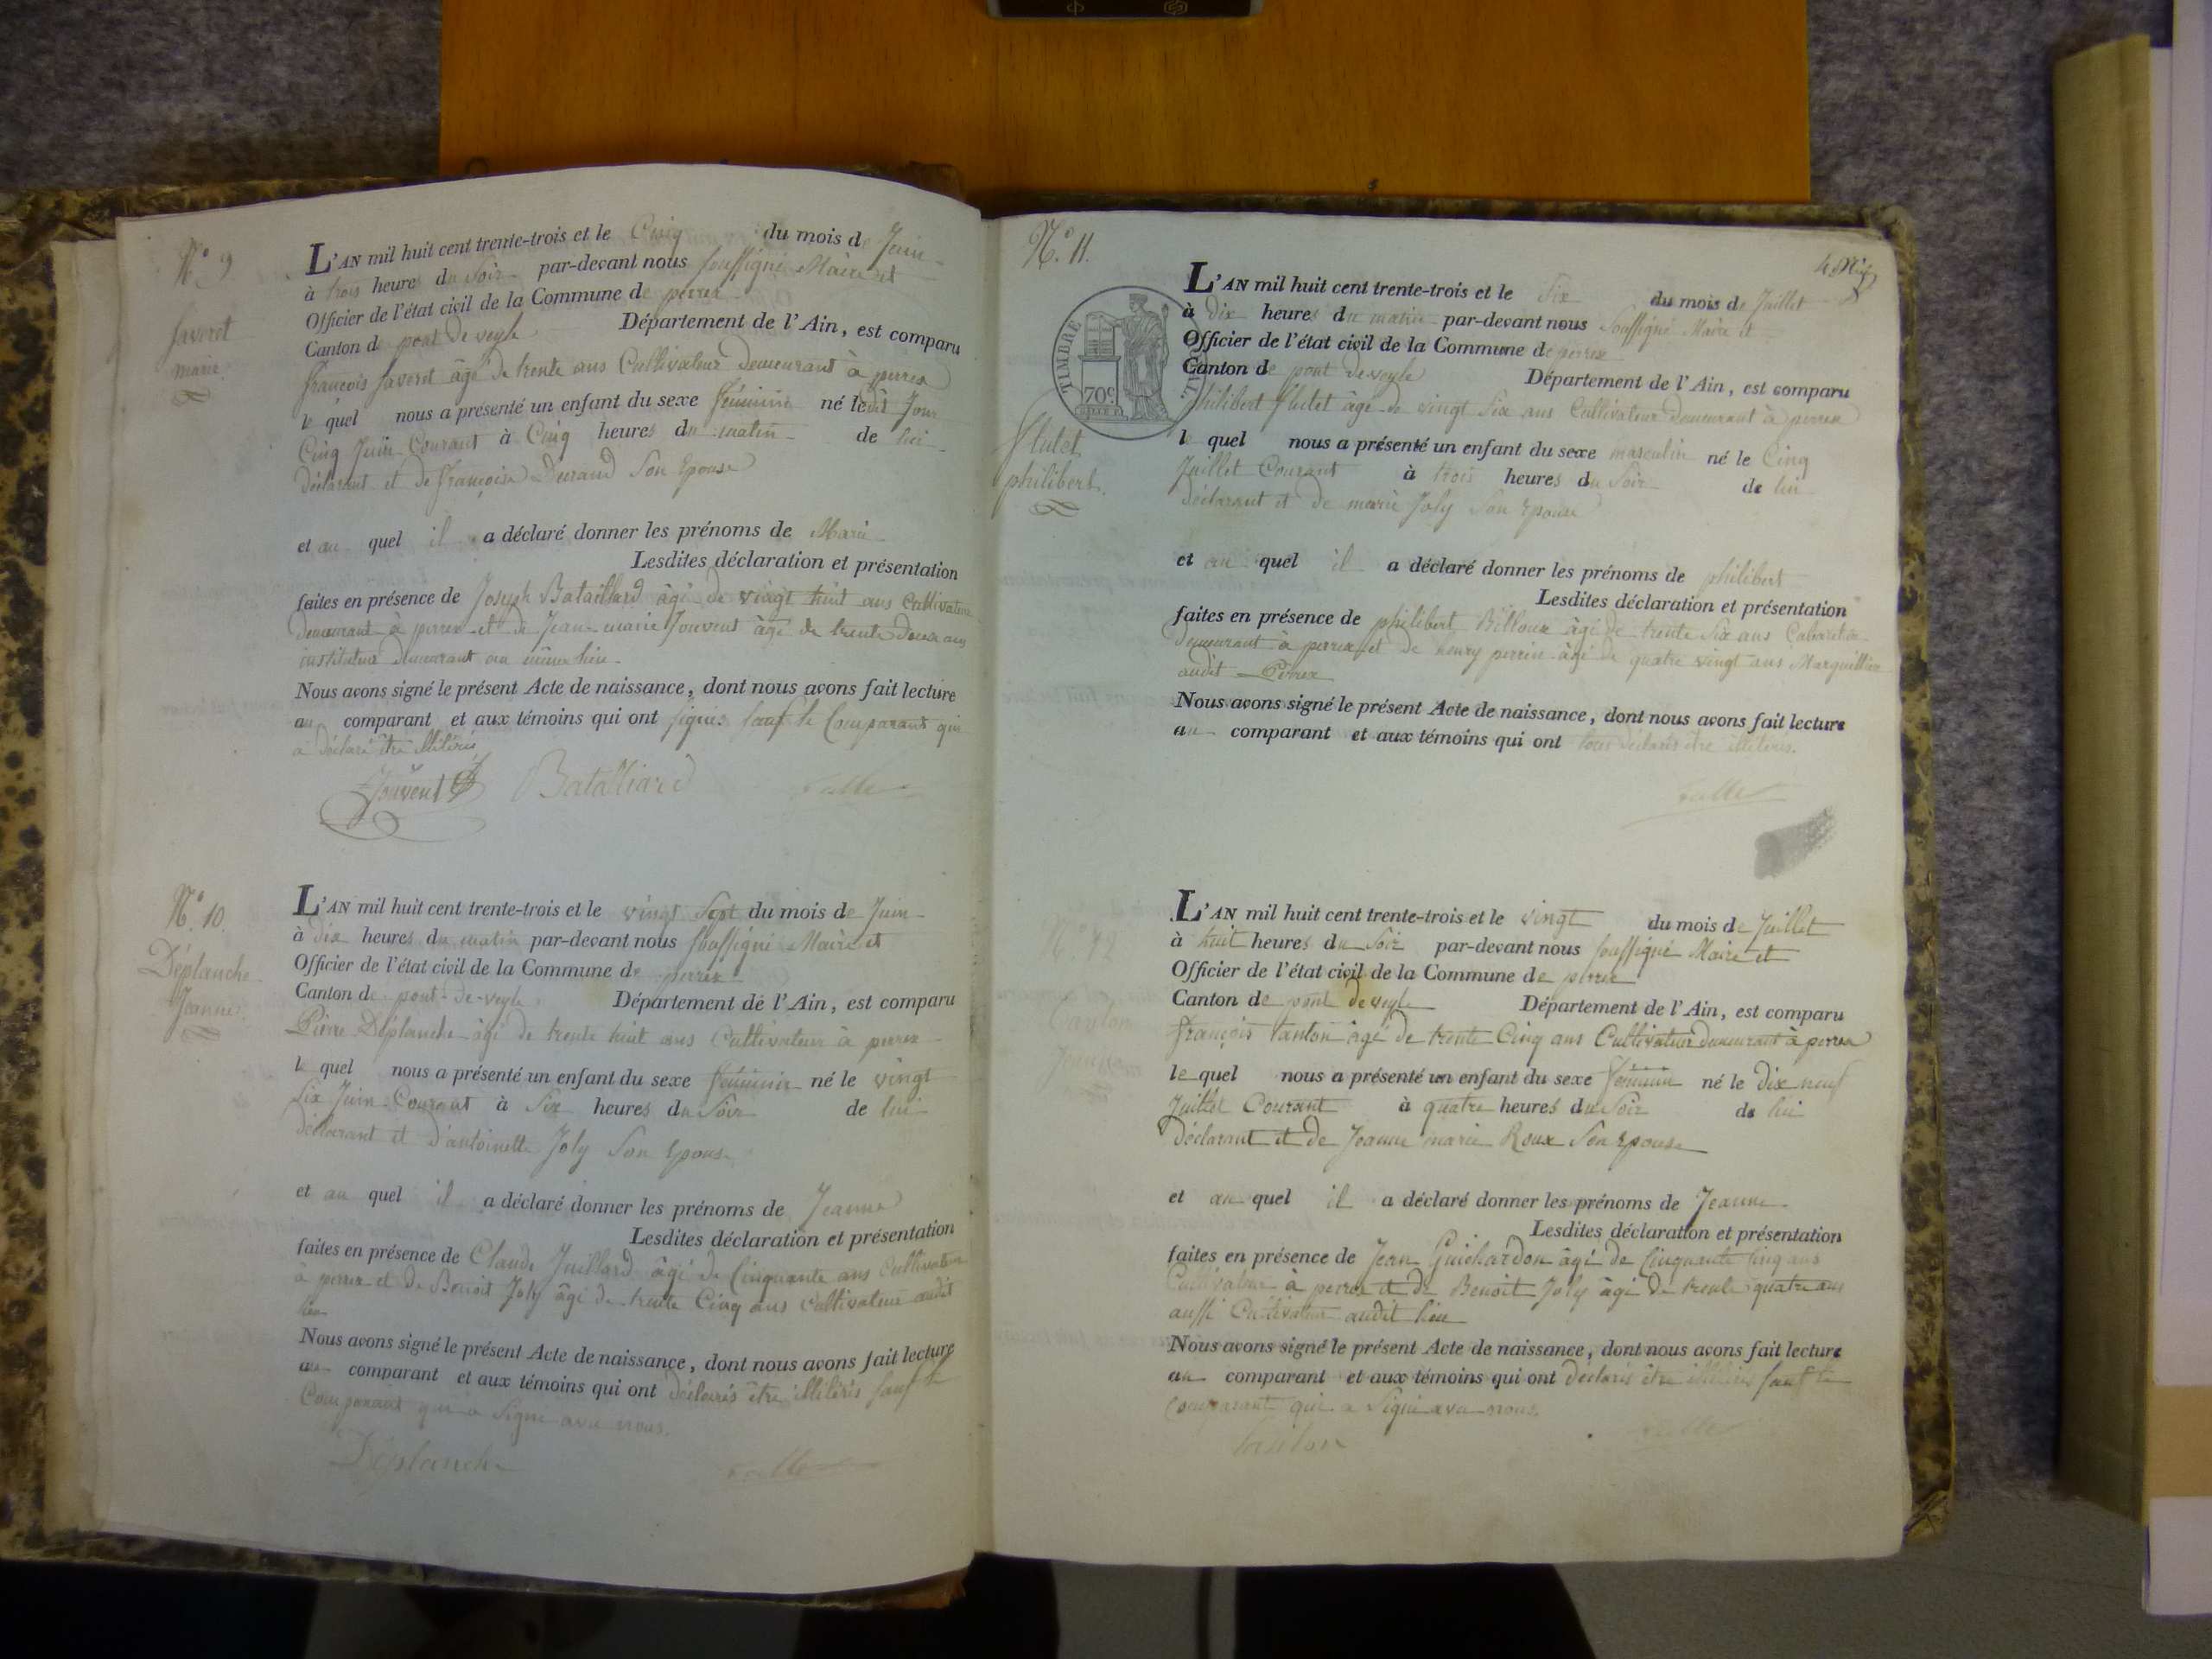 N.º 9
faveret
marie
L'AN mil huit cent trente-trois et le Cinq du mois de Juin
à trois heures du soir par-devant nous soussigné Maire et
Officier de l'état civil de la Commune de perrex
Canton de pont de veyle Département de l'Ain, est comparu
françois faveret âgé de trente ans Cultivateur demeurant à perrex
le quel nous a présenté un enfant du sexe féminin né ledit Jour
Cinq Juin Courant à Cinq heures du matin de lui
déclarant et de françoise Durand Son Epouse
et au quel il a déclaré donner les prénoms de Marie
Lesdites déclaration et présentation
faites en présence de Joseph Bataillard âgé de vingt huit ans Cultivateur
demeurant à perrex et de Jean-marie Jouvent âgé de trente deux ans
instituteur demeurant au même lieu
Nous avons signé le présent Acte de naissance, dont nous avons fait lecture
au comparant et aux témoins qui ont signés sauf le Comparant qui
a déclaré être illitéré
Jouvent Batalliard
N.º 10.
Déplanche
Jeanne
L'AN mil huit cent trente-trois et le vingt Sept du mois de Juin
à dix heures du matin par-devant nous soussigné Maire et
Officier de l'état civil de la Commune de perrex
Canton de pont-de-veyle Département de l'Ain, est comparu
Pierre Déplanche âgé de trente huit ans Cultivateur à perrex
le quel nous a présenté un enfant du sexe féminin né le vingt
Six Juin Courant à Six heures du Soir de lui
déclarant et d'antoinette Joly Son Epouse
et au quel il a déclaré donner les prénoms de Jeanne
Lesdites déclaration et présentation
faites en présence de Claude Juillard âgé de Cinquante ans Cultivateur
à perrex et de Benoit Joly âgé de trente Cinq ans Cultivateur audit
lieu
Nous avons signé le présent Acte de naissance, dont nous avons fait lecture
au comparant et aux témoins qui ont déclarés être illitérés sauf le
Comparant qui a Signé avec nous.
Déplanche
N.º 11.
TIMBRE
70c
flutet
philibert
L'AN mil huit cent trente-trois et le Six du mois de Juillet
à dix heures du matin par-devant nous Soussigné Maire et
Officier de l'état civil de la Commune de perrex
Canton de pont de veyle Département de l'Ain, est comparu
philibert flutet âgé de vingt Six ans Cultivateur demeurant à perrex
le quel nous a présenté un enfant du sexe masculin né le Cinq
Juillet Courant à trois heures du Soir de lui
déclarant et de marie Joly Son Epouse
et au quel il a déclaré donner les prénoms de philibert
Lesdites déclaration et présentation
faites en présence de philibert Billoux âgé de trente Six ans Cabaretier
demeurant à perrex et de henry perrin âgé de quatre vingt ans Marguillier
audit Perrex
Nous avons signé le présent Acte de naissance, dont nous avons fait lecture
au comparant et aux témoins qui ont tous déclarés être illitérés.
N.º 12
Tanton
Jeanne
L'AN mil huit cent trente-trois et le vingt du mois de Juillet
à huit heures du Soir par-devant nous soussigné Maire et
Officier de l'état civil de la Commune de perrex
Canton de pont de veyle Département de l'Ain, est comparu
françois tanton âgé de trente Cinq ans Cultivateur demeurant à perrex
le quel nous a présenté un enfant du sexe féminin né le dix neuf
Juillet Courant à quatre heures du Soir de lui
déclarant et de Jeanne marie Roux Son Epouse
et au quel il a déclaré donner les prénoms de Jeanne
Lesdites déclaration et présentation
faites en présence de Jean Guichardon âgé de Cinquante Cinq ans
Cultivateur à perrex et de Benoit Joly âgé de trente quatre ans
aussi Cultivateur audit lieu
Nous avons signé le présent Acte de naissance, dont nous avons fait lecture
au comparant et aux témoins qui ont déclarés être illitérés sauf le
Comparant qui a Signé avec nous.
tanton